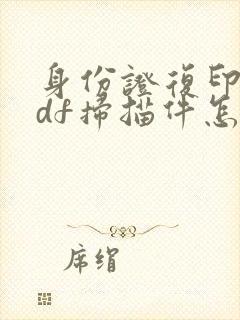 身份證復印
df掃描件怎
席绢